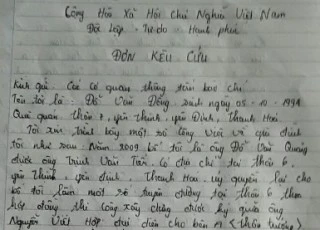 Cộng Hòa Xã Hội Chủ Nghĩa Việt Nam
Độc Lập - Tự do - Hạnh phúc
ĐƠN KÊU CỨU
Kính gửi: Các cơ quan thông tấn báo chí
Tên tôi là: Đỗ Văn Đông sinh ngày 05-10-1994
Quê quán thôn 7, yên thịnh, yên Định, Thanh Hoá
Tôi xin trình bày một số việc về gia đình
tôi như sau. Năm 2009 bố tôi là ông Đỗ Văn Quang
được ông Trịnh Văn Tấn có địa chỉ tại thôn 6,
yên Thịnh, yên định, Thanh Hoá uỷ quyền lại cho
bố tôi làm một số tuyến đường tại thôn 6 theo
hợp đồng thi công xây dựng được ký giữa ông
Nguyễn Viết Hợp đại diện cho bên A (thôn trưởng)